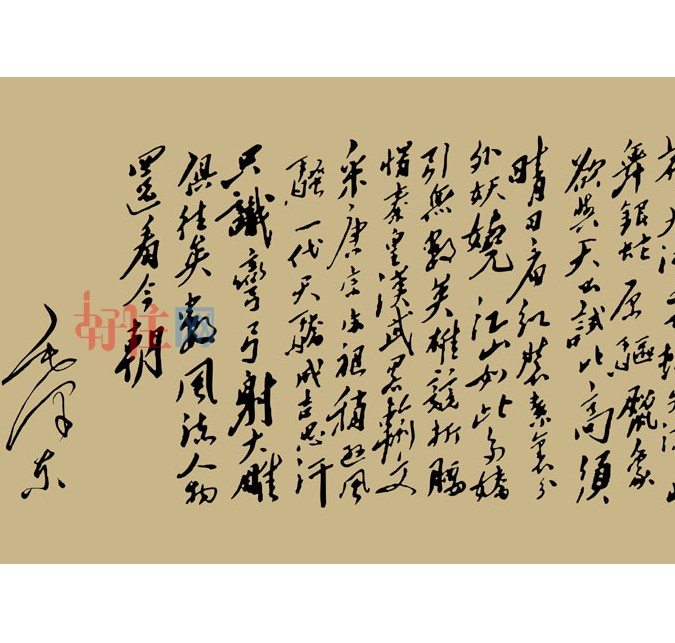 大河
舞銀蛇原驅臘象
欲與天公試比高須
晴日看紅裝素裹分
外妖嬈江山如此多嬌
引無數英雄競折腰
惜秦皇漢武略輸文
采唐宗宋祖稍遜風
騷一代天驕成吉思汗
只識彎弓射大雕
俱往矣數風流人物
還看今朝
毛澤東
好住网